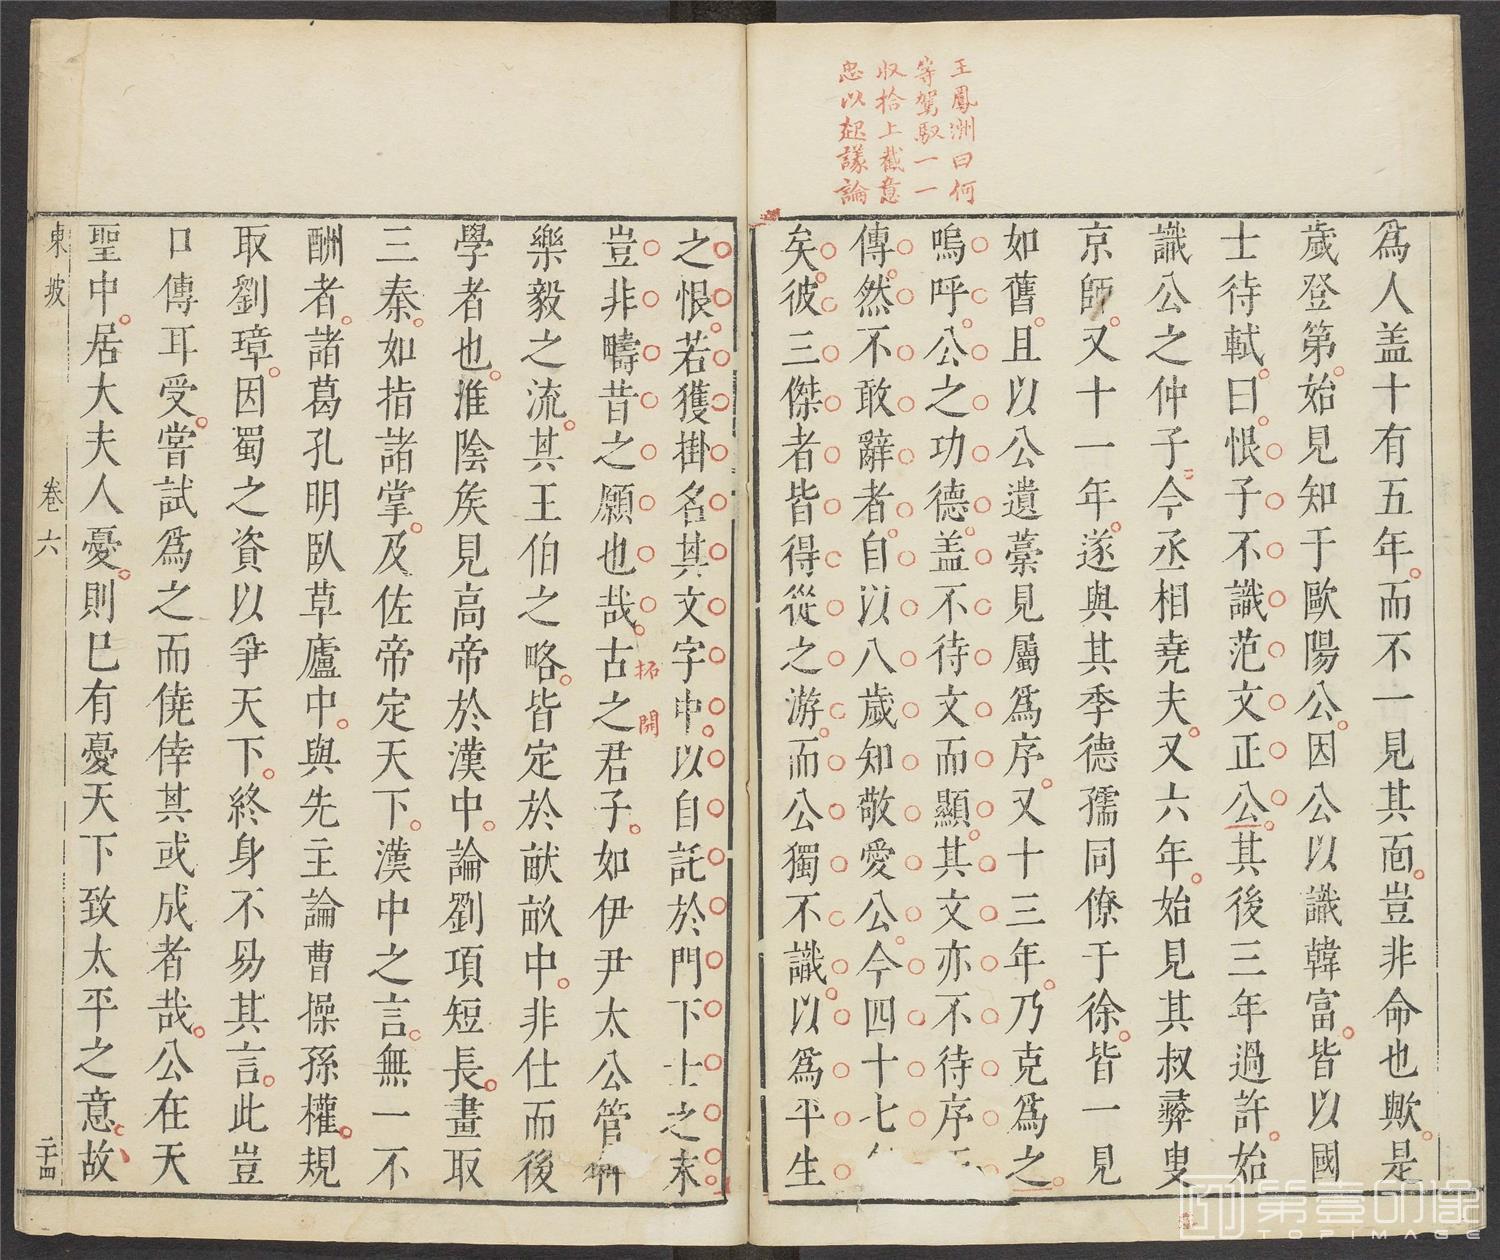 王鳳洲曰何
等駕馭一一
收拾上截意
忠以起議論
為人盖十有五年而不一見其面豈非命也歟是
歲登第始見知于歐陽公因公以識韓富皆以國
士待軾曰恨子不識范文正公其後三年過許始
識公之仲子今丞相堯夫又六年始見其叔彛叟
京師又十一年遂與其季德孺同僚于徐皆一見
如舊且以公遺藁見屬為序又十三年乃克為之
嗚呼公之功德盖不待文而顯其文亦不待序
傳然不敢辭者自以八歲知敬愛公今四十七
矣彼三傑者皆得從之游而公獨不識以為平生
之恨若獲掛名其文字中以自託於門下士之末
豈非疇昔之願也哉古之君子如伊尹太公管仲
拓開
樂毅之流其王伯之略皆定於畎畝中非仕而後
學者也淮陰矦見高帝於漢中論劉項短長畫取
三秦如指諸掌及佐帝定天下漢中之言無一不
酬者諸葛孔明臥草廬中與先主論曹操孫權規
取劉璋因蜀之資以爭天下終身不易其言此豈
口傳耳受嘗試為之而僥倖其或成者哉公在天
聖中居大夫人憂則已有憂天下致太平之意故
東坡 卷六 二十四
第壹印像
TOPIMAGE